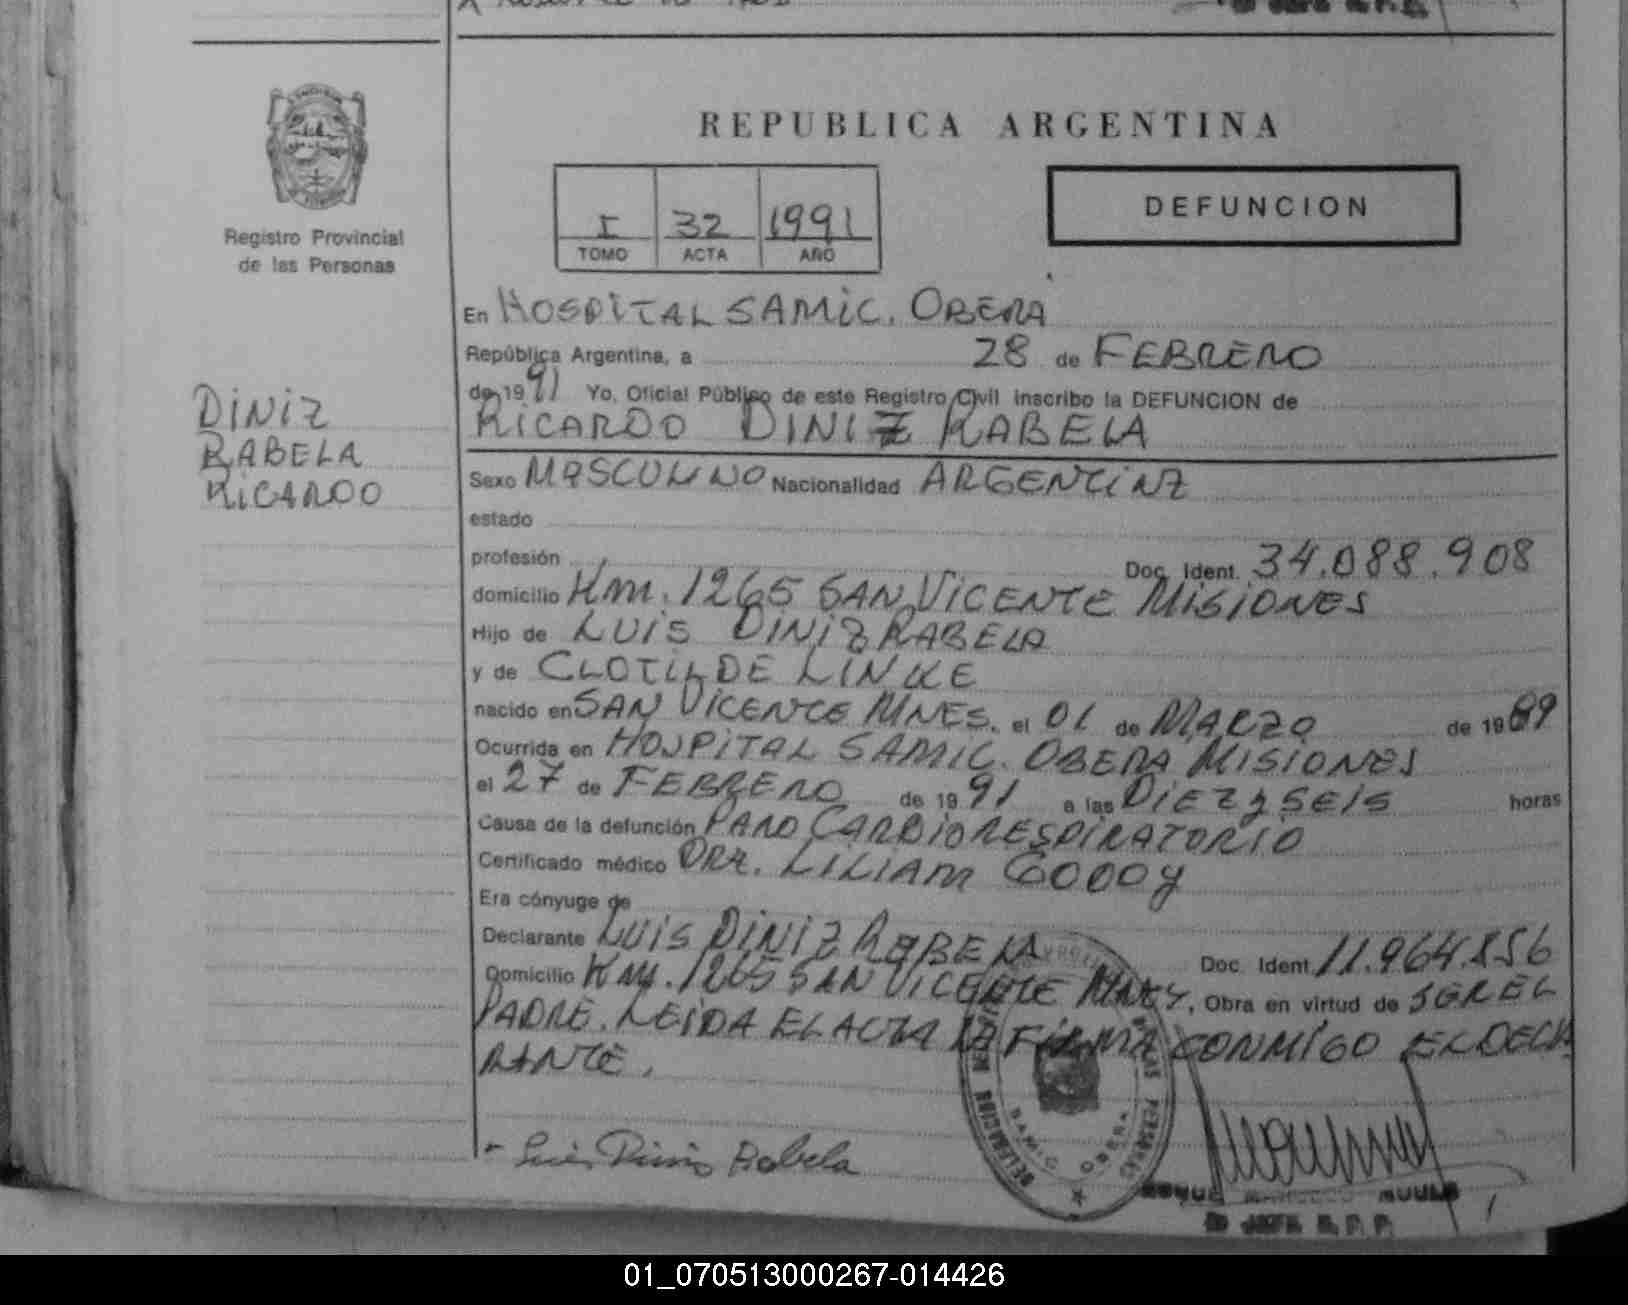 REPUBLICA ARGENTINA
Registro Provincial
de las Personas
I 32 1991
TOMO ACTA AÑO
DEFUNCION
DINIZ
RABELA
RICARDO
En HOSPITAL SAMIC. OBERA
República Argentina, a 28 de FEBRERO
de 1991 Yo, Oficial Público de este Registro Civil inscribo la DEFUNCION de
RICARDO DINIZ RABELA
Sexo MASCULINO Nacionalidad ARGENTINA
estado
profesión Doc. Ident. 34.088.908
domicilio Km. 1265 SAN VICENTE MISIONES
Hijo de LUIS DINIZ RABELA
y de CLOTILDE LINKE
nacido en SAN VICENTE MNES. el 01 de MARZO de 1989
Ocurrida en HOSPITAL SAMIC. OBERA MISIONES
el 27 de FEBRERO de 1991 a las DIEZ y SEIS horas
Causa de la defunción PARO CARDIORESPIRATORIO
Certificado médico DRA. LILIAM GODOY
Era cónyuge de
Declarante LUIS DINIZ RABELA Doc. Ident. 11.964.856
Domicilio Km. 1265 SAN VICENTE MNES, Obra en virtud de SER EL
PADRE. LEIDA EL ACTA LA FIRMA CONMIGO EL DECLA
RANTE.
Luis Diniz Rabela
SAMIC OBERA
JEFE R.P.P.
01_070513000267-014426